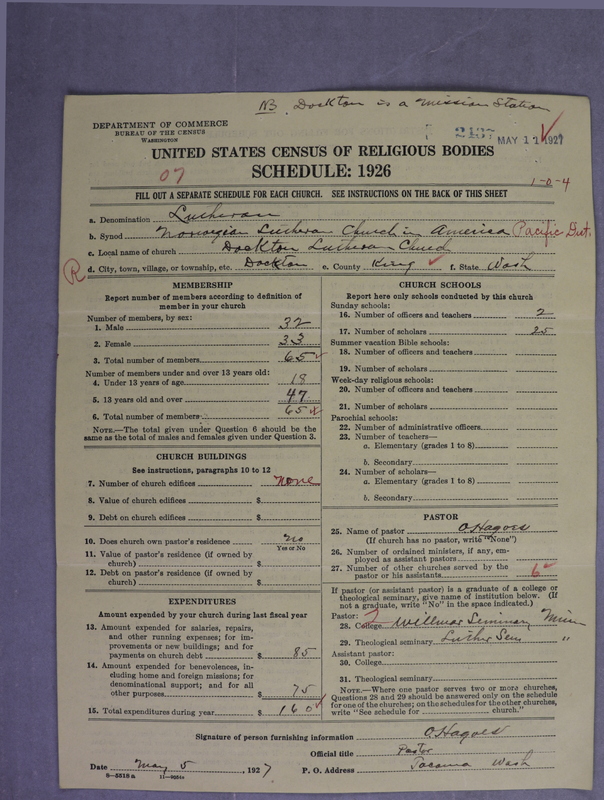 NB. Dockton is a Mission Station
DEPARTMENT OF COMMERCE
BUREAU OF THE CENSUS
WASHINGTON
2437 MAY 11 1927
UNITED STATES CENSUS OF RELIGIOUS BODIES
SCHEDULE: 1926
07
1-0-4
FILL OUT A SEPARATE SCHEDULE FOR EACH CHURCH. SEE INSTRUCTIONS ON THE BACK OF THIS SHEET
a. Denomination Lutheran
b. Synod Norwegian Lutheran Church in America Pacific Dist.
c. Local name of church Dockton Lutheran Church
R d. City, town, village, or township, etc. Dockton e. County King f. State Wash
MEMBERSHIP
Report number of members according to definition of
member in your church
Number of members, by sex:
1. Male 32
2. Female 33
3. Total number of members 65
Number of members under and over 13 years old:
4. Under 13 years of age 18
5. 13 years old and over 47
6. Total number of members 65
NOTE.—The total given under Question 6 should be the
same as the total of males and females given under Question 3.
CHURCH BUILDINGS
See instructions, paragraphs 10 to 12
7. Number of church edifices none
8. Value of church edifices $
9. Debt on church edifices $
10. Does church own pastor's residence? no
Yes or No
11. Value of pastor's residence (if owned by
church) $
12. Debt on pastor's residence (if owned by
church) $
EXPENDITURES
Amount expended by your church during last fiscal year
13. Amount expended for salaries, repairs,
and other running expenses; for im-
provements or new buildings; and for
payments on church debt $ 85
14. Amount expended for benevolences, in-
cluding home and foreign missions; for
denominational support; and for all
other purposes $ 75
15. Total expenditures during year $ 160
CHURCH SCHOOLS
Report here only schools conducted by this church
Sunday schools:
16. Number of officers and teachers 2
17. Number of scholars 25
Summer vacation Bible schools:
18. Number of officers and teachers
19. Number of scholars
Week-day religious schools:
20. Number of officers and teachers
21. Number of scholars
Parochial schools:
22. Number of administrative officers
23. Number of teachers—
a. Elementary (grades 1 to 8)
b. Secondary
24. Number of scholars—
a. Elementary (grades 1 to 8)
b. Secondary
PASTOR
25. Name of pastor O Hagoes
(If church has no pastor, write "None")
26. Number of ordained ministers, if any, em-
ployed as assistant pastors
27. Number of other churches served by the
pastor or his assistants 6
If pastor (or assistant pastor) is a graduate of a college or
theological seminary, give name of institution below. (If
not a graduate, write "No" in the space indicated.)
Pastor:
28. College Willmar Seminary Minn
29. Theological seminary Luther Sem "
Assistant pastor:
30. College
31. Theological seminary
NOTE.—Where one pastor serves two or more churches,
Questions 28 and 29 should be answered only on the schedule
for one of the churches; on the schedules for the other churches,
write "See schedule for church."
Signature of person furnishing information O Hagoes
Official title Pastor
Date May 5, 1927 P. O. Address Tacoma Wash
8-5516a